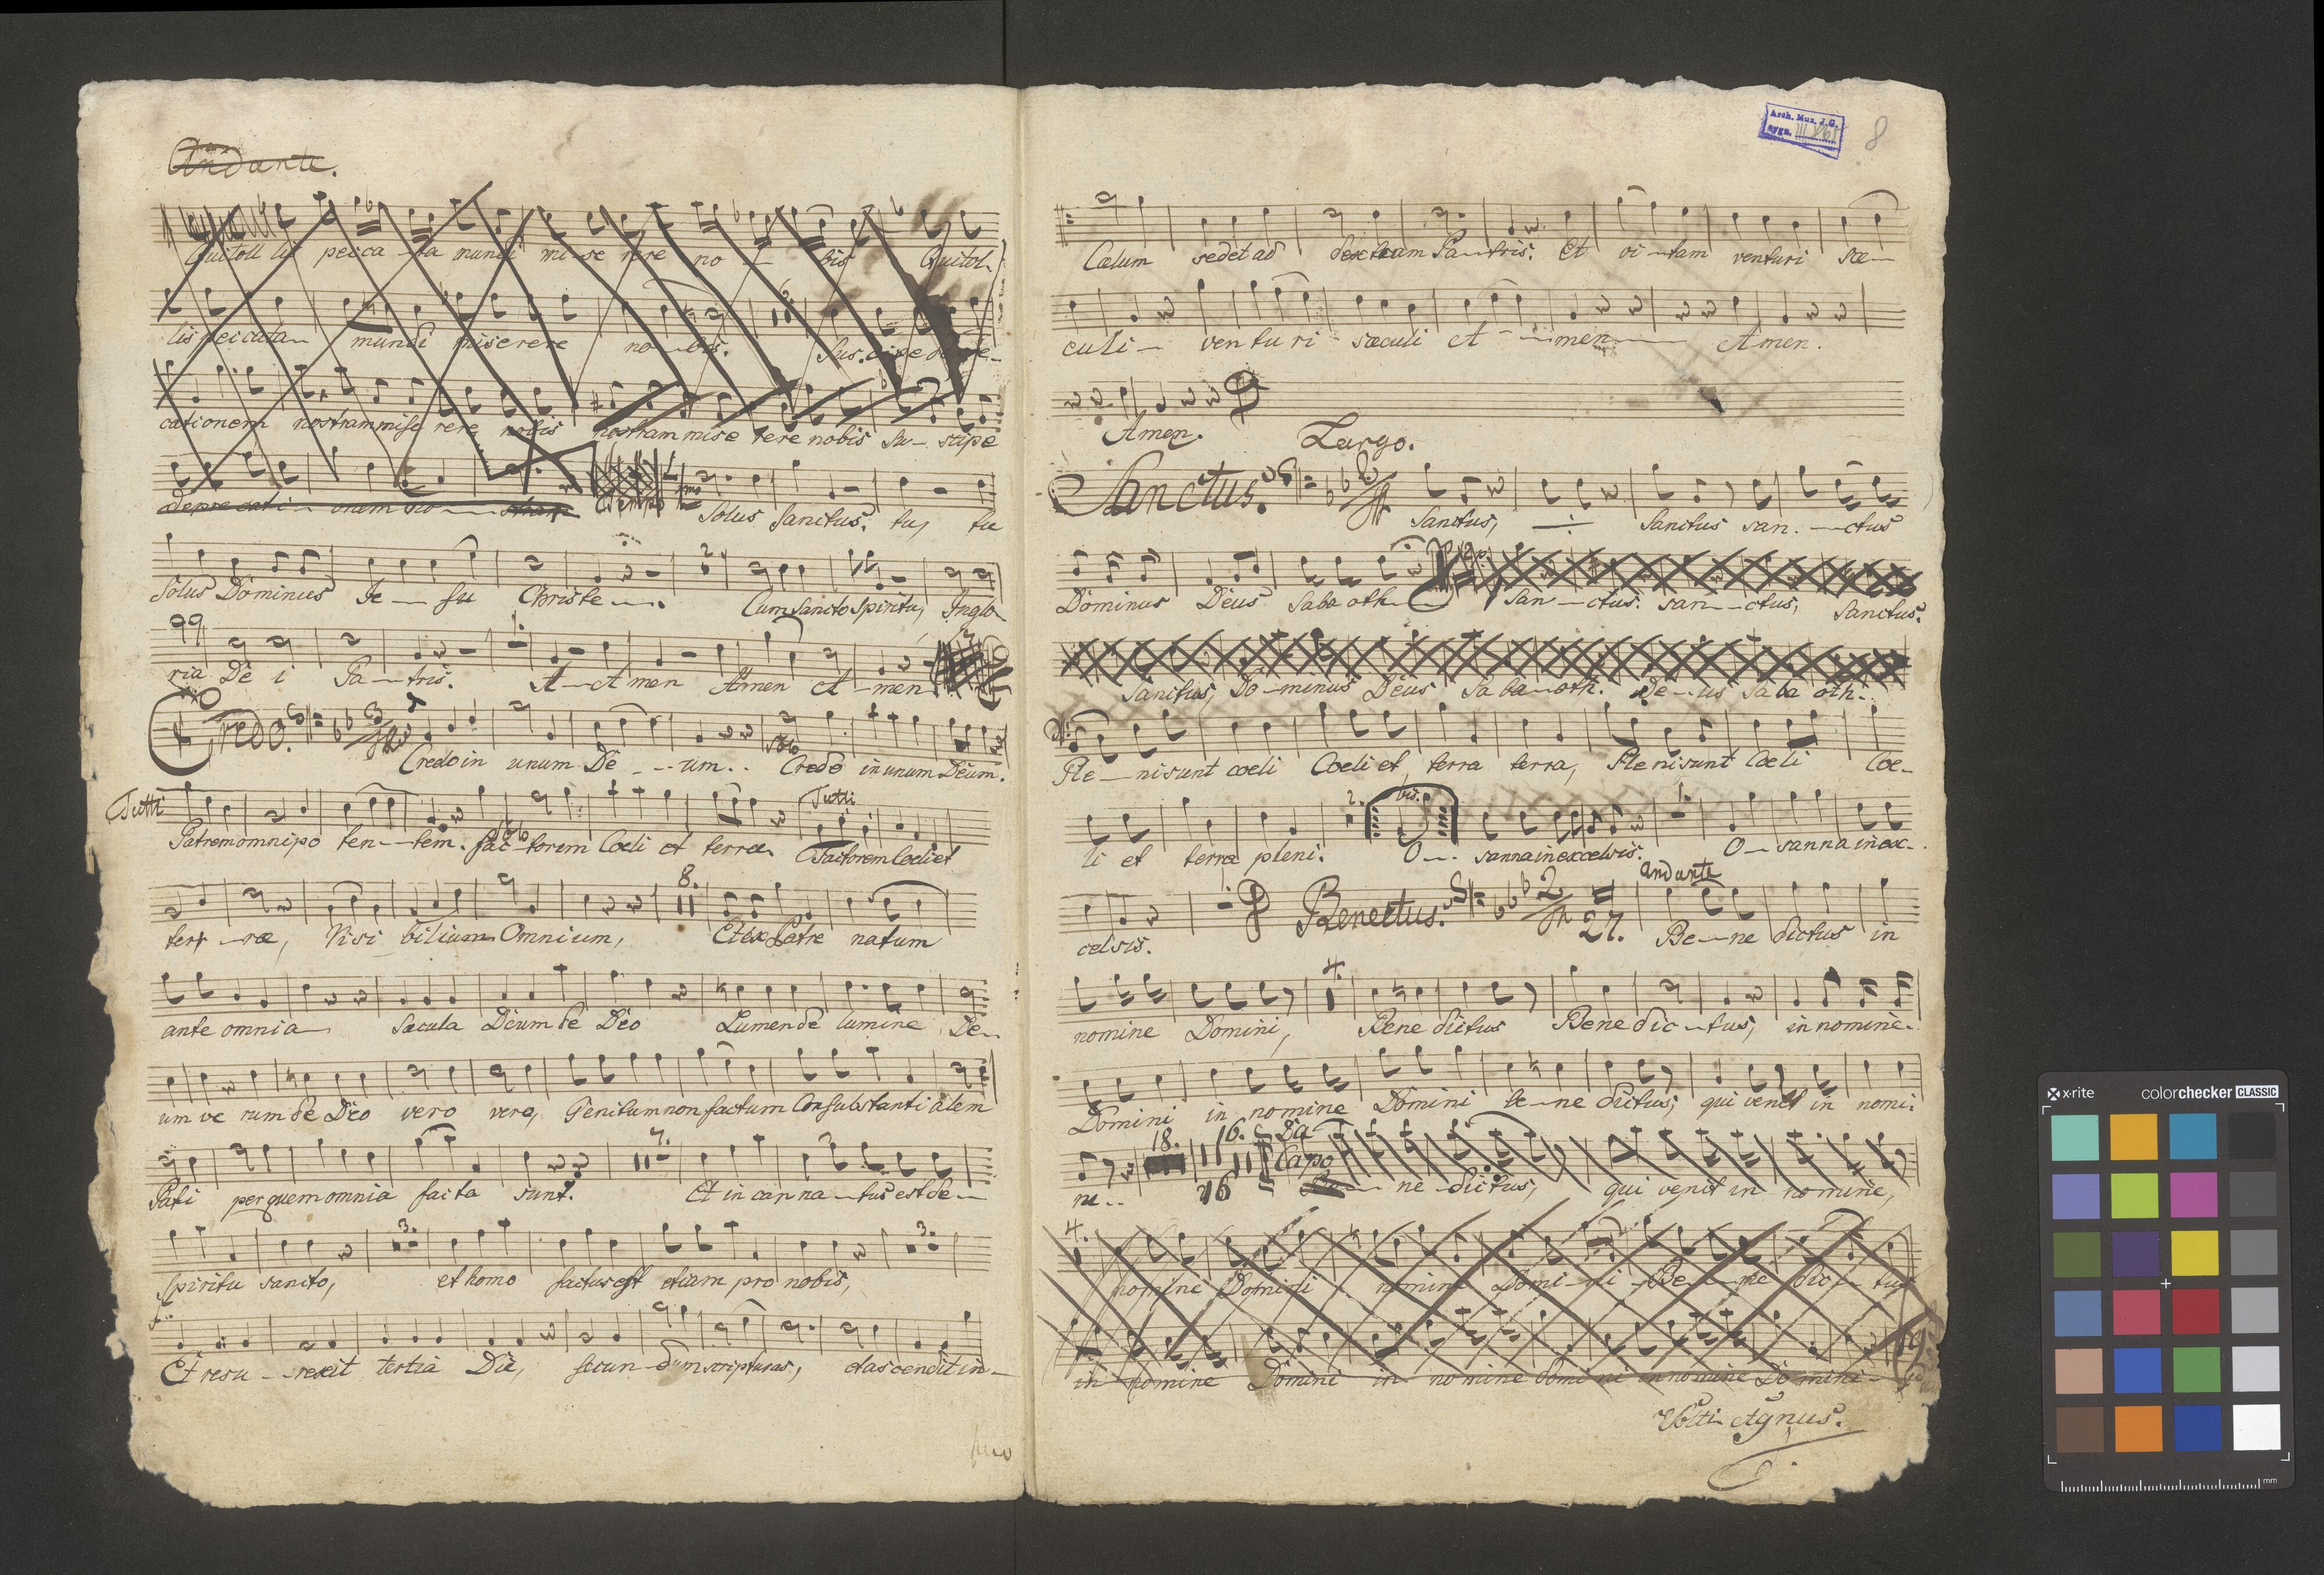 Andante.
Qui toll lis pecca – ta mundi mi – se rere no – – bis Qui tol –
lis peccata – mundi miserere no – bis. Sus. cipe depre –
cationem nostram mise rere nobis nostram mise rere nobis su – scipe
depre cati – onem no – – stram Tempo 1mo Solus sanctus. tu, tu
Solus Dominus Je – – su Christe – –. Cum Sancto Spiritu, In glo
ria De i Pa – – tris. A – – A men Amen A – men
Credo. Credo in unum De – – – um. . Solo Credo in unum Deum.
Tutti Patrem omnipo ten – – tem. Solo fac – torem Coeli et terrae. Tutti Factorem Coeli et
terr – rae, Visi bilium Omnium, 8. Et ex Patre natum
ante omnia – Saecula Deum de Deo Lumen de lumine De –
um ve rum de Deo vero vero, Genitum non factum Consubstanti alem
Patri per quem omnia facta sunt. 7. Et in car na – tus est de –
Spiritu sancto, 3. et homo factus est etiam pro nobis, 3.
Et resu – – rexit tertia Die, secun – dum scripturas, et ascendit in –
Arch. Muz. J.G.
sygn. III
8
Caelum sedet ad dexteram Pa – tris. Et vi – tam venturi sae –
culi – ven tu ri – saeculi A – – men – – Amen.
Amen. Largo.
Sanctus. Sanctus, – ÷ – Sanctus san. – – ctus
Dominus Deus Saba oth – – San – – ctus. san – – ctus, Sanctus.
Sanctus, Do – minus Deus Sa ba – oth. De – – us Sa ba oth –.
Ple – – ni sunt coeli Coeli et terra terra, Pleni sunt Coeli Coe –
li et terra pleni. 2. bis. O – –. sanna in excelsis. 1. O – sanna in ex –.
celsis. 1. Benectus. 2 27. Andante Be – – ne dictus in
nomine Domini, 4. Bene dictus Bene dic – tus, in nomine –.
Domini in nomine Domini be – ne dictus, qui venit in nomi.
ne – – 18. 16. 16 Da Capo Be – – ne – dictus, qui venit in nomine,
4. nomine Domini nomine Domi – ni – Be – – ne dic – tus
in nomine Domini in no mine domi ni in nomine Do mini –
Volti Agnus.